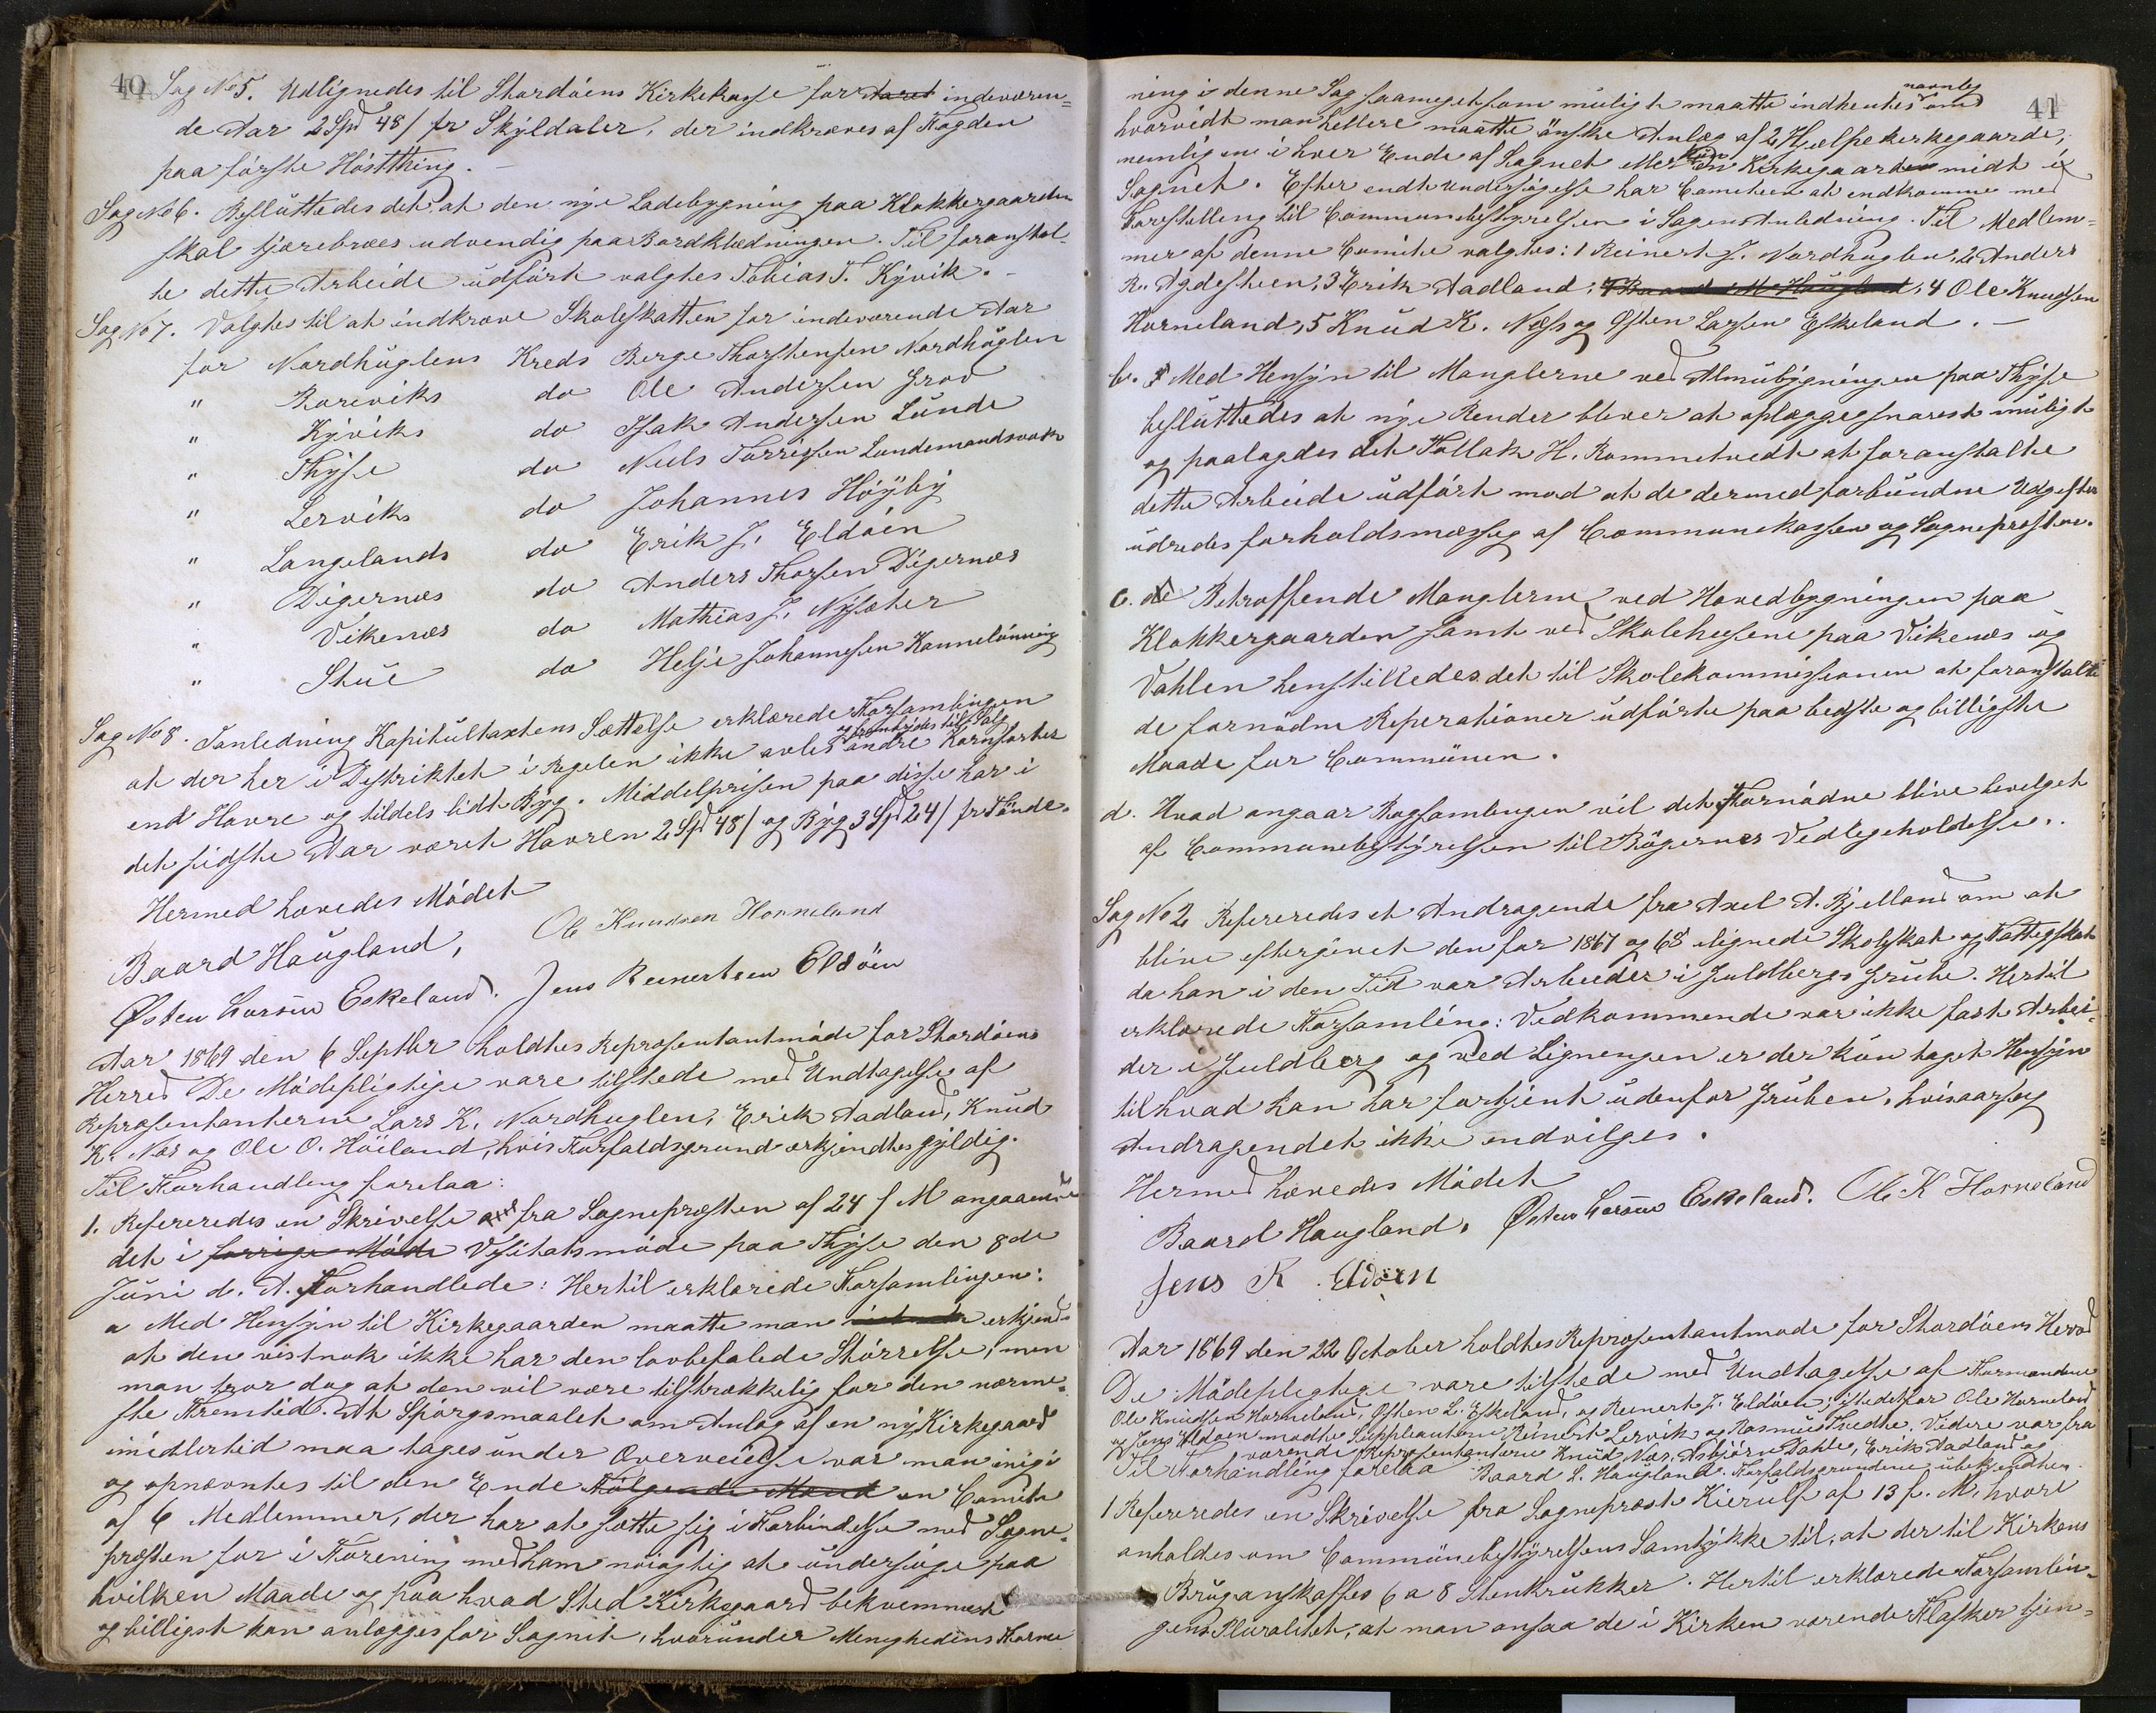 40
Sag No 5. Udlignedes til Stordöens Kirkekasse for Aaret indeværen-
de Aar 2 Spd 48/ pr Skyldaler, der indkræves af Fogden
paa förste Höstthing.
Sag No 6. Besluttedes det at den nye Ladebygning paa Klokkergaarden
skal tjærebræes udvendig paa Bordklædningen. Til foranstal-
te dette Arbeide udfört valgtes Tobias T. Kyvik.
Sag No 7. Valgtes til at indkræve Skoleskatten for indeværende Aar
for Nordhuglens Kreds Berge Thorstensen Nordhuglen
" Roreviks do Ole Andersen Grov
" Kyviks do Isak Andersen Lunde
" Thyse do Neels Torrissen Landemandsvæk
" Lerviks do Johannes Höyby
" Langelands do Erik J. Eldöen
" Digernæs do Anders Thorsen Digernæs
" Vikenæs do Mathias J. Nysæter
" Stue do Helje Johannesen Kannelönning
Sag No 8. I anledning Kapitultaxtens Sættelse erklærede Forsamlingen
og frembydes til Salg
at der her i Destriktet i Regelen ikke avles andre Kornsorter
end Havre og tildels lidt Byg. Middelprisen paa disse har i
det sidste Aar været Havren 2 Spd 48/ og Byg 3 Spd 24/ pr Tönde.
Hermed hævedes Mödet
Baard Haugland, Ole Knudsen Horneland
Østen Larsen Eskeland. Jens Reinertsen Eldöen
Aar 1869 den 6 Septbr holdtes Repræsentantmöde for Stordöens
Herred De Mödepligtige vare tilstede med Undtagelse af
Repræsentanterne Lars K. Nordhuglen, Erik Aadland, Knud
K. Næs og Ole O. Höiland, hvis Forfaldsgrund erkjendtes gyldig.
Til Forhandling forelaa:
1. Refereredes en Skrivelse fra Sognepræsten af 24 f M angaaende
det i forrige Möde Visitatsmöde paa Thyse den 8de
Juni d. A. Forhandlede: Hertil erklærede Forsamlingen:
a Med Hensyn til Kirkegaarden maatte man erkjende
at den vistnok ikke har den lovbefalede Störrelse, men
man tror dog at den vil være tilstrækkelig for den nærme-
ste Fremtid. At Spörgsmaalet om Anlæg af en ny Kirkegaard
imidlertid maa tages under Overveielse var man enig i
og opnævntes til den Ende Fölgende Mænd en Comite
af 6 Medlemmer, der har at sætte sig i Forbindelse med Sogne-
præsten for i Forening med ham nöiagtig at undersöge paa
hvilken Maade og paa hvad Sted Kirkegaard bekvemmest
og billigst kan anlægges for Sognet, hvorunder Menighedens Forme
41
ning i denne Sag saameget som muligt maatte indhentes navnlig om
hvorvidt man hellere maatte önske Anlæg af 2 Hjælpekirkegaarde,
nemlig en i hver Ende af Sognet eller kun en Kirkegaard midt i
Sognet. Efter endt Undersögelse har Comiteen at indkomme med
Forestilling til Communebestyrelsen i Sagens Anledning. Til Medlem-
mer af denne Comite valgtes: 1 Reinert J. Nordhuglen, 2 Anders
R. Agdesteen, 3 Erik Aadland, 4 Baard M Haugland, 4 Ole Knudsen
Horneland, 5 Knud K. Næs og Østen Larsen Eskeland.
b. Med Hensyn til Manglerne ved Almubygningen paa Thyse
besluttedes at nye Render bliver at oplægges snarest muligt
og paalagdes det Tollak H. Rommetvedt at foranstalte
dette Arbeide udfört mod at de dermed forbundne Udgifter
udredes forholdsmæssig af Communekassen og Sognepræsten.
c. Betræffende Manglerne ved Hovedbygningen paa
Klokkergaarden samt ved Skolehusene paa Vikenæs og
Vahlen henstilledes det til Skolekommissionen at foranstalte
de fornödne Reperationer udförte paa bedste og billigste
Maade for Communen.
d. Hvad angaar Bogsamlingen vil det Fornödne blive bevilget
af Communebestyrelsen til Bögernes Vedligeholdelse.
Sag No 2 Refereredes et Andragende fra Axel A. Bjelland om at
blive eftergivet den for 1867 og 68 lignede Skoleskat og Fattigskat
da han i den Tid var Arbeider i Guldbergs Grube. Hertil
erklærede Forsamling: Vedkommende var ikke fast Arbei-
der i Guldberg og ved Ligningen er der kun taget Hensyn
til hvad han har fortjent udenfor Gruben, hvisaarsag
Andragendet ikke indvilges.
Hermed hævedes Mödet
Baard Haugland. Østen Larsen Eskeland. Ole K Horneland
Jens R Eldöen
Aar 1869 den 22 October holdtes Repræsentantmöde for Stordöens Herred
De Mödepligtige vare tilstede med Undtagelse af Formændene
Ole Knudsen Horneland, Østen L. Eskeland, og Reinert J. Eldöen; istedetfor Ole Horneland
og Jens Eldöen mödte Suppleanterne Reinert Lervik og Rasmus Tvedte. Videre var fra
værende Repræsentanterne Knud Næs, Asbjörn Dahle, Erik Aadland og
Til Forhandling forelaa Baard L. Haugland. Forfaldsgrundene ubekjendte.
1 Refereredes en Skrivelse fra Sognepræst Kierulf af 13 f. M. hvori
anholdes om Communebestyrelsens Samtykke til, at der til Kirkens
Brug anskaffes 6 a 8 Stenkrukker. Hertil erklærede Forsamlin-
gens Pluralitet, at man ansaa de i Kirken værende Flasker tjen-